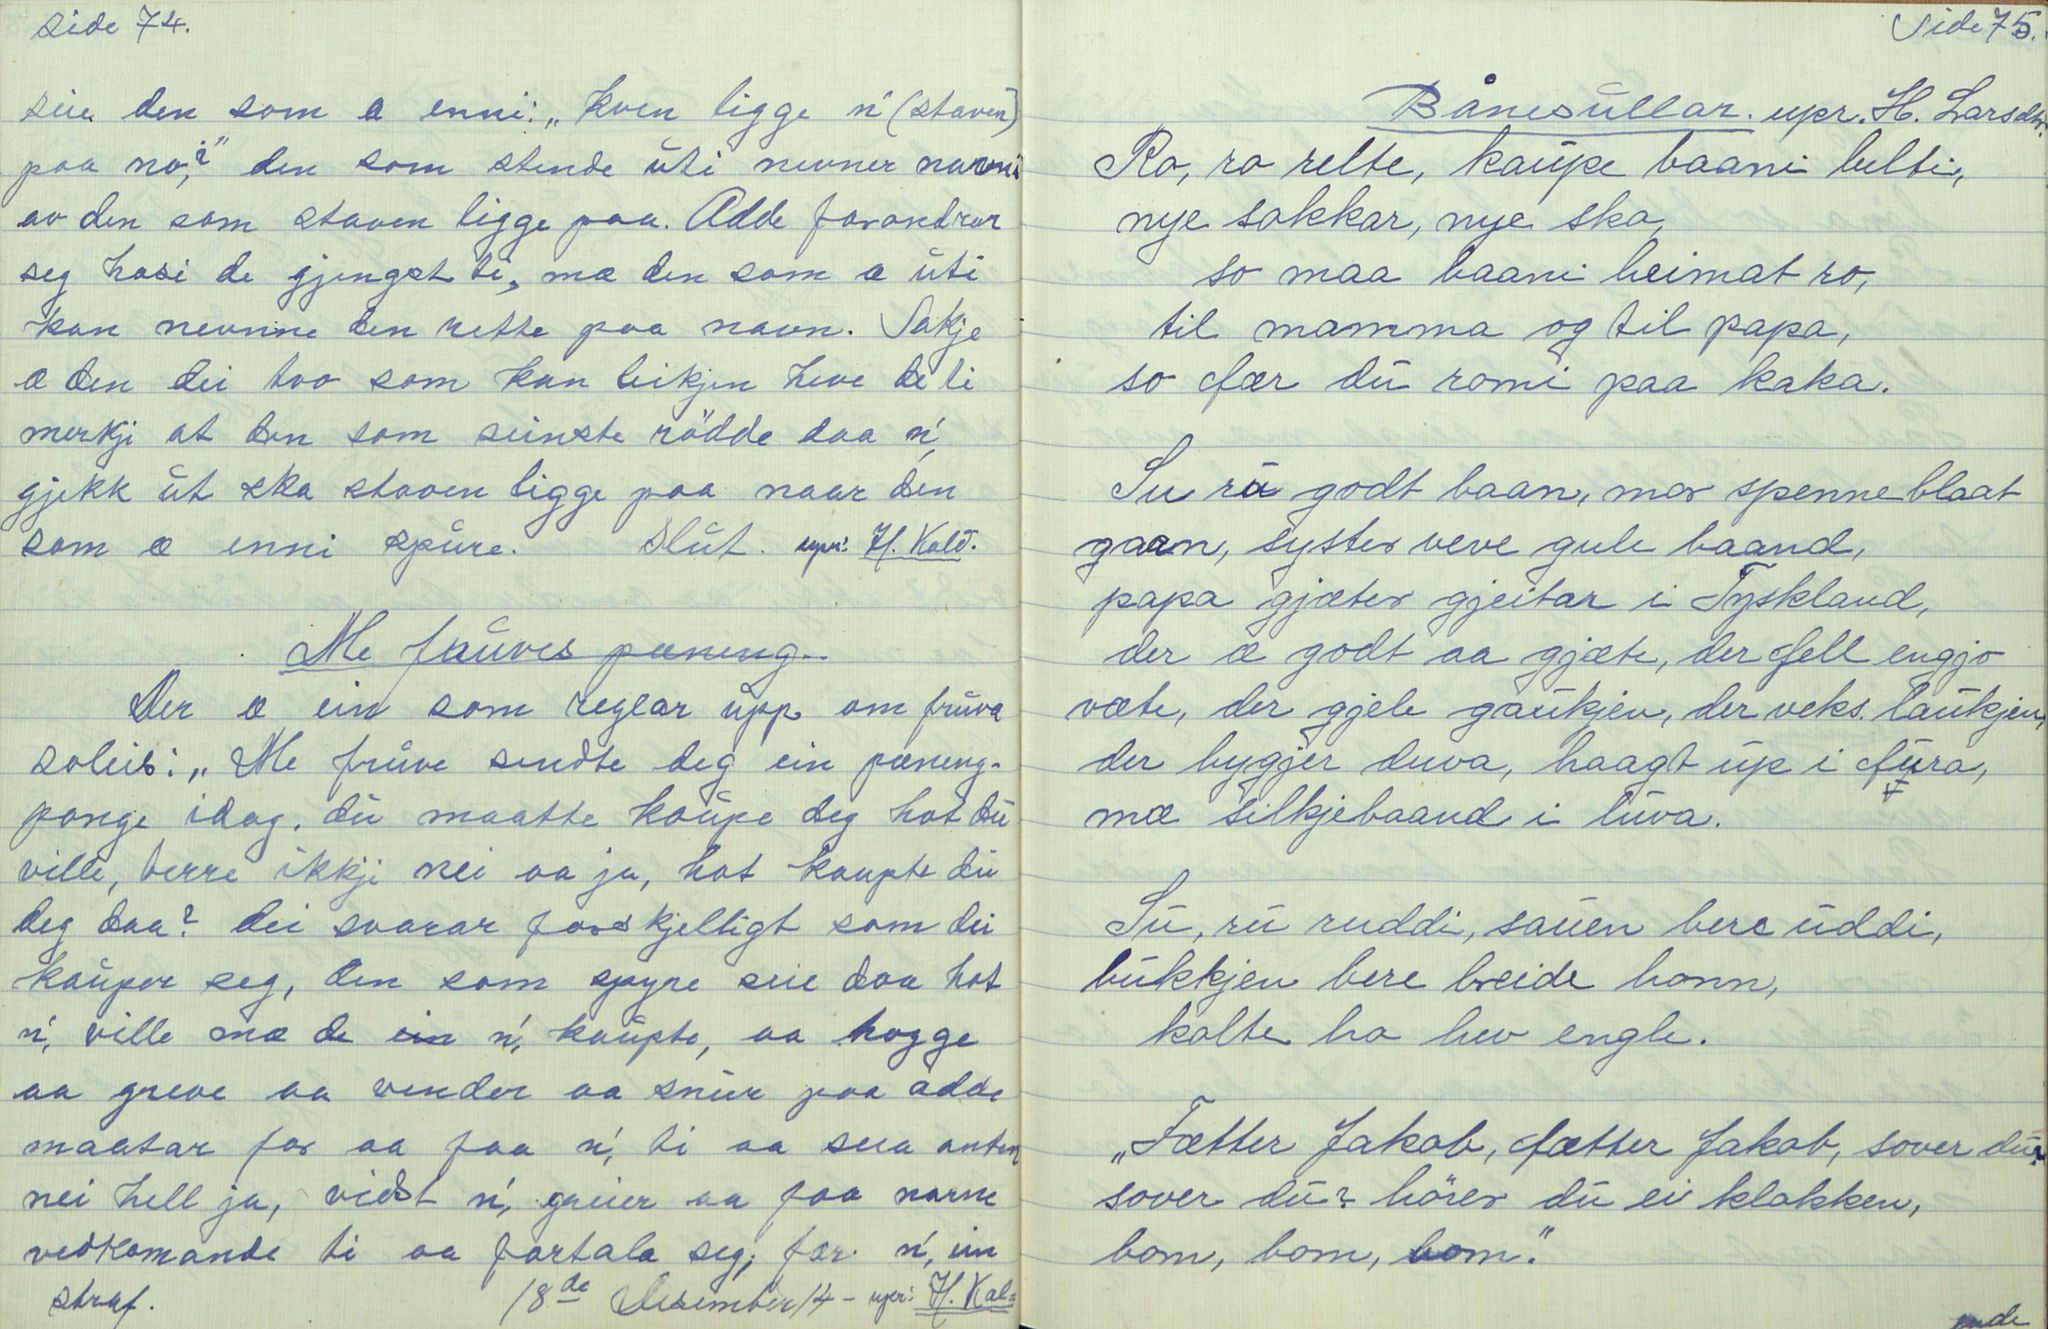 side 74.
seie den som æ enni: „kven ligge n' (staven)
paa no?" den som stende úti nevner navni
av den som staven ligge paa. Adde forandrar
seg hosi de gjengst ti, mæ den som æ úti
kan nevnne den rette paa navn. Sakje
æ den dei tvo som kan leikjen heve de ti
merkji at den som seinste rödde daa n',
gjekk út ska staven ligge paa naar den
som æ enni spúre. Slút. upr: H. Kald.
Me frúves pæneng.
Der æ ein som reglar úpp om frúva
soleis: „Me frúve sendte deg ein pæneng-
ponge idag. dú maatte kaúpe deg hot dú
ville, berre ikkji nei aa ja, hot kaupte dú
deg daa? dei svarar forskjelligt som dei
kaúper seg, den som spyre seie daa hot
n', ville mæ de n', kaúpte, aa hogge
aa greve aa vender aa snúr paa adde
maatar for aa faa n', ti aa seia anten
nei hell ja, vidst n', greier aa faa narne
vedkomande ti aa fortala seg, fær n', ein
straf. 18de Desember 14 - upr: H. Kal=
Side 75.
Bånesúllar. upr. H. Larsdtr.
Ro, ro relte, kaúpe baani belti,
nye sokkar, nye sko,
so maa baani heimat ro,
til mamma og til papa,
so fær dú romi paa kaka.
Su ru godt baan, mor spenne blaat
gaan, syster veve gule baand,
papa gjæter gjeitar i Tyskland,
der æ godt aa gjæte, der fell engjo
væte, der gjele gaúkjen, der veks laúkjen,
der bygjer duva, haagt úp i fúra,
mæ silkjebaand i lúva.
Sú, rú ruddi, saúen bere úddi,
búkkjen bere breide honn,
kolte ho hev engle.
„Fætter Jakob, fætter Jakob, sover dú?
sover dú? hörer dú ei klokken,
bom, bom, bom."